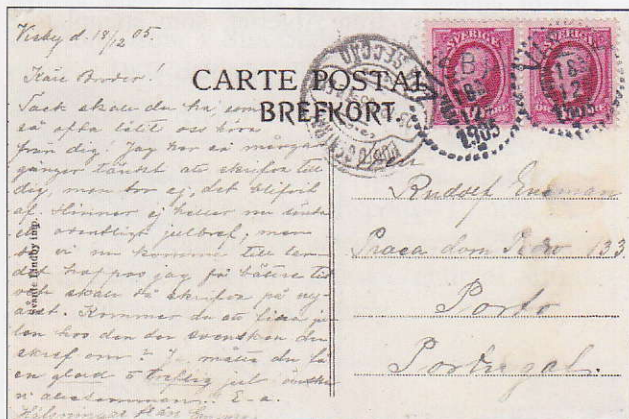 Visby d. 18/12 05.
Käre Broder!
Tack skall du ha, som
så ofta låtit oss höra
från dig! Jag har så många
gånger tänkt att skrifva till
dig, men har ej, det blifvit
af. Hinner ej heller nu
ordentligt julbref, men
vi nu komma till
det hoppas jag få bättre tid
och skall då skrifva på ny-
året. Kommer du att fira ju-
len hos den der svensken du
skref om? Ja, måtte du få
en glad o treflig jul önska
vi allesammans. E-a.
Helsningar från
CARTE POSTAL
BREFKORT.
SVERIGE
SVERIGE
Rudolf
Praca dom Pedro 133
Porto
Portugal.